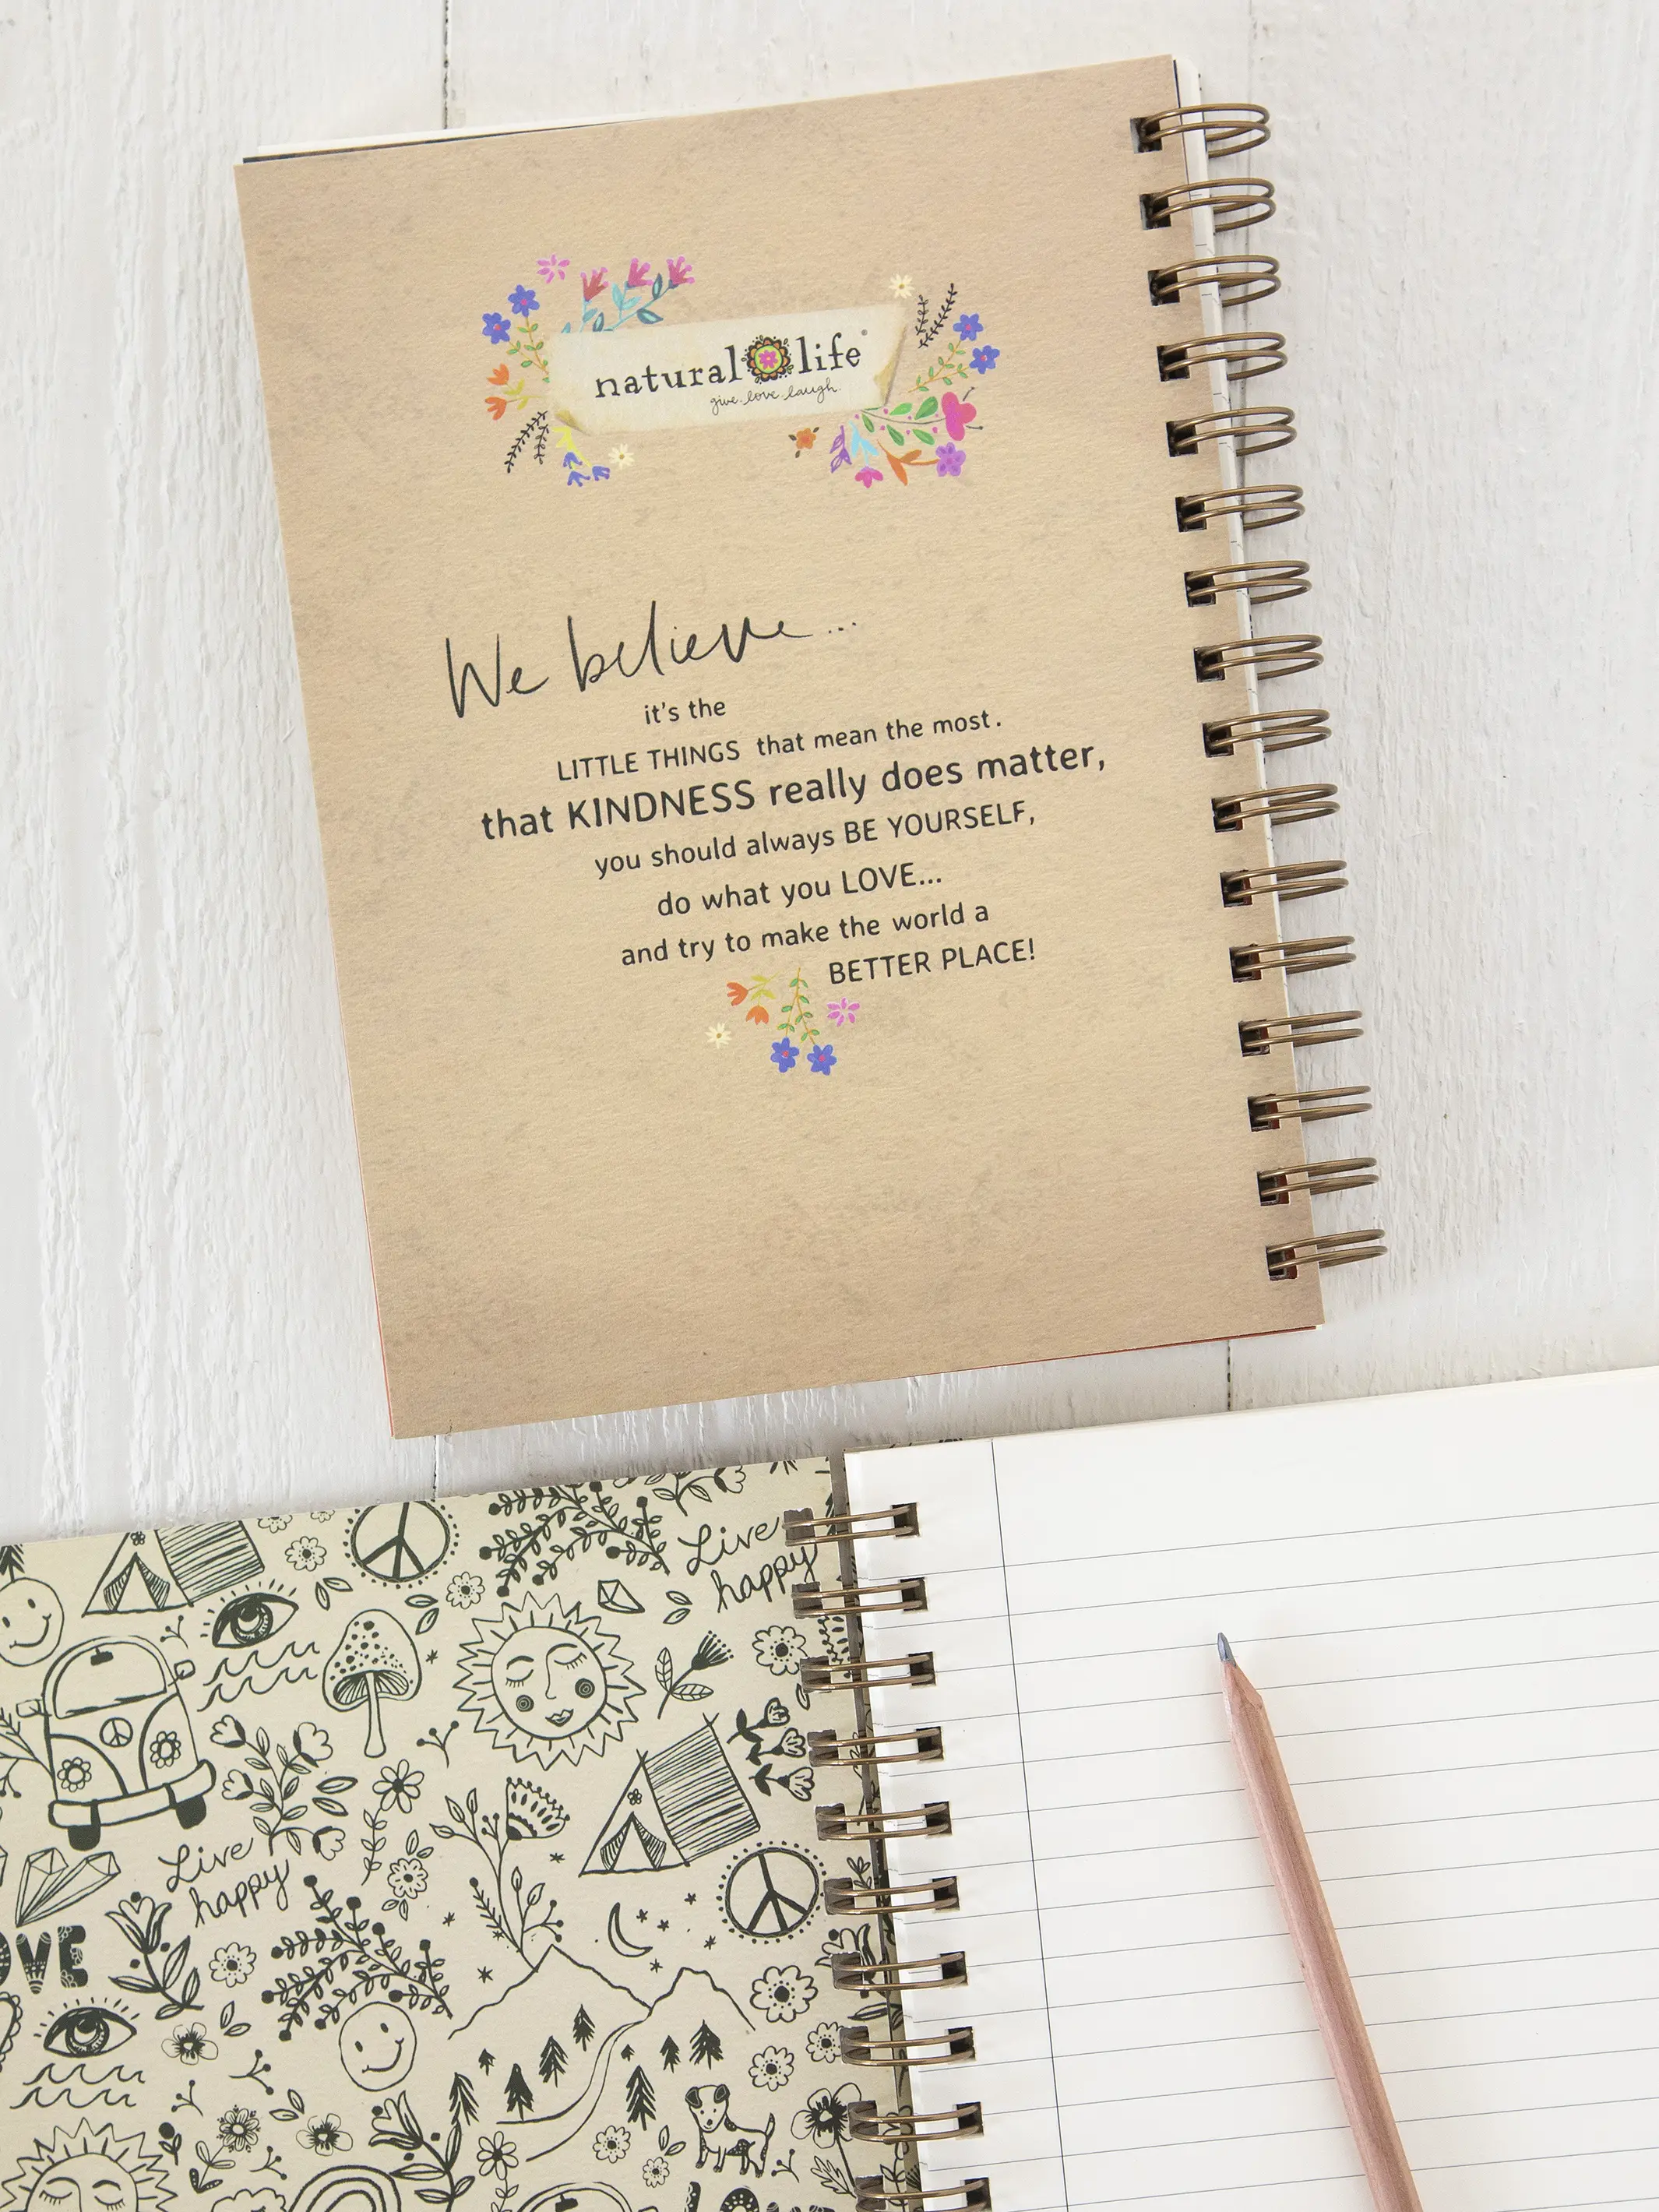 natural life®
give. love. laugh.
We believe...
it's the
LITTLE THINGS that mean the most.
that KINDNESS really does matter,
you should always BE YOURSELF,
do what you LOVE...
and try to make the world a
BETTER PLACE!
Live
happy
Live
happy